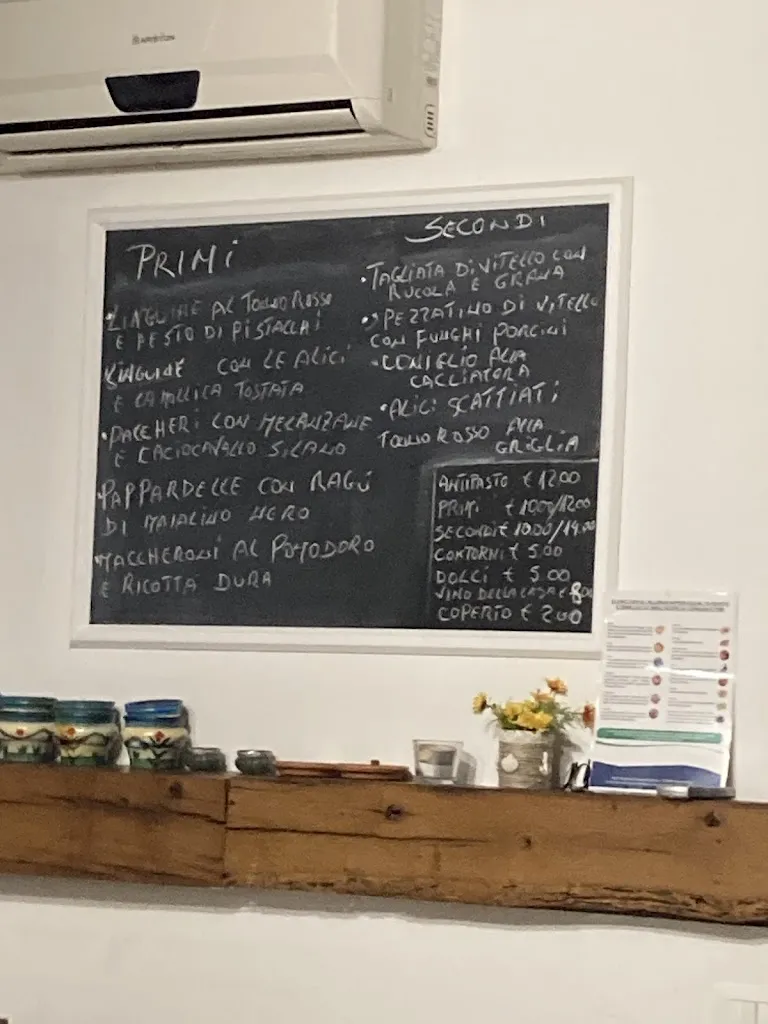 PRIMI
LINGUINE AL TONNO ROSSO
E PESTO DI PISTACCHI
LINGUINE CON LE ALICI
E LA MOLLICA TOSTATA
•PACCHERI CON MELANZANE
E CACIOCAVALLO SILANO
PAPPARDELLE CON RAGÙ
DI MAIALINO NERO
•MACCHERONI AL POMODORO
E RICOTTA DURA
SECONDI
•TAGLIATA DI VITELLO CON
RUCOLA E GRANA
•SPEZZATINO DI VITELLO
CON FUNGHI PORCINI
•CONIGLIO ALLA
CACCIATORA
•ALICI SCATTIATI
TONNO ROSSO ALLA
GRIGLIA
ANTIPASTO € 12.00
PRIMI € 10.00/12.00
SECONDI € 10.00/14.00
CONTORNI € 5.00
DOLCI € 5.00
VINO DELLA CASA € 8.00
COPERTO € 2.00